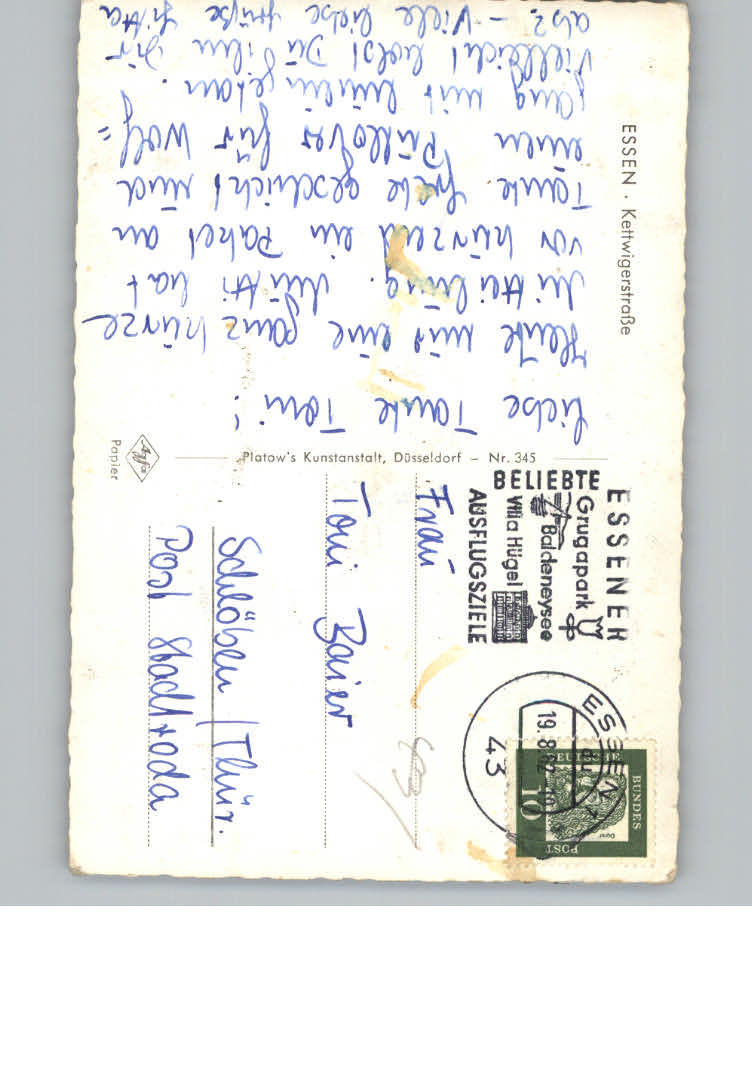 ESSEN · Kettwigerstraße
Liebe Tante Toni!
Heute nur eine ganz kurze
Mitteilung. Mutti hat
vor kurzem ein Paket an
Tante Grete geschickt und
einen Pullover für Wolf=
gang mit hinein getan.
Vielleicht holst Du ihn Dir
ab? – Viele liebe Grüße Gitta
Platow's Kunstanstalt, Düsseldorf – Nr. 345
Agfa
Papier
ESSENER
Grugapark
Baldeneysee
Villa Hügel
BELIEBTE
AUSFLUGSZIELE
ESSEN 1
19.8.62
43
DEUTSCHE
BUNDES
POST
10
Dürer
Frau
Toni Baier
Schlöben / Thür.
Post Stadtroda